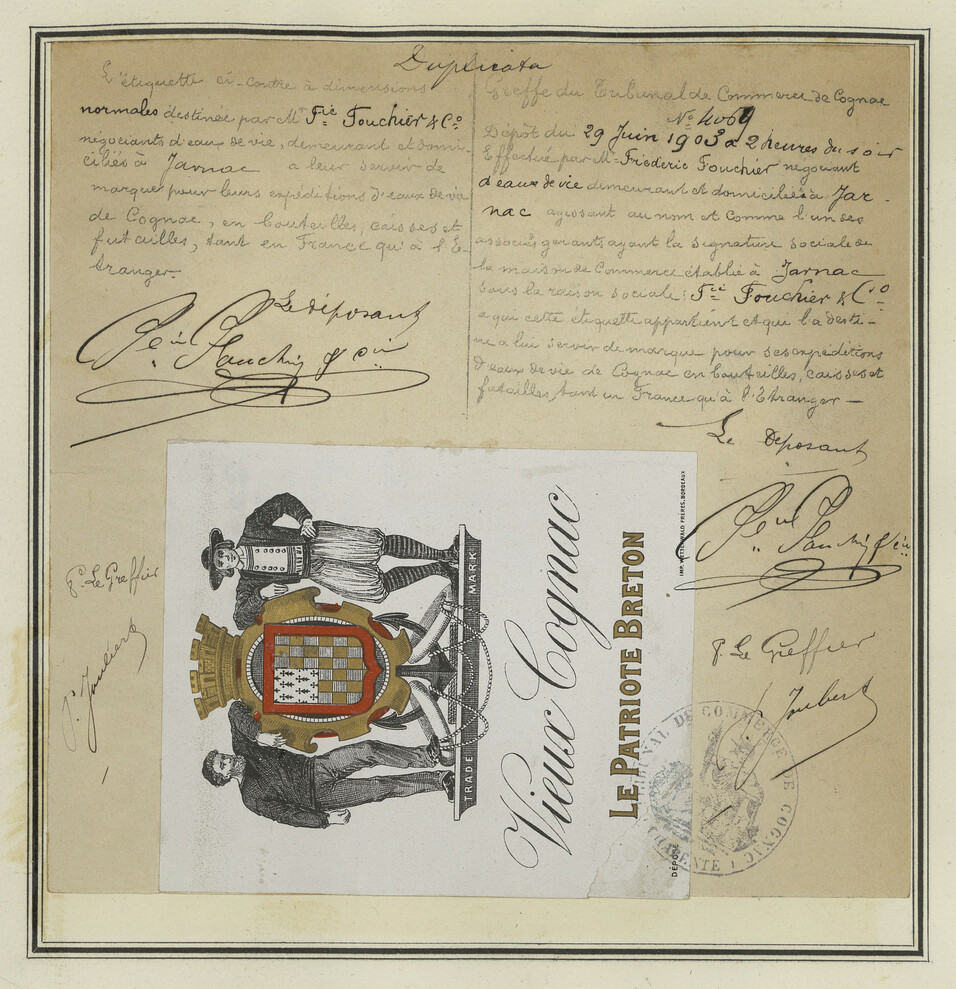 Duplicata
L'étiquette ci-contre à dimensions
normales destinée par Mr Fcic Fouchier & Co
négociants d'eaux de vie, demeurant et domi-
ciliés à Jarnac a leur servir de
marque pour leurs expéditions d'eaux de vie
de Cognac, en bouteilles, caisses et
futailles, tant en France qu'à l'É-
tranger.
Le déposant
Pr Le Greffier
Greffe du Tribunal de Commerce de Cognac
No 4069
Dépôt du 29 Juin 1903 à 2 heures du soir
Effectué par Mr Fréderic Fouchier négociant
d'eaux de vie demeurant et domicilié à Jar-
nac agissant au nom et comme l'un des
associés gérants ayant la signature sociale de
la maison de Commerce établie à Jarnac
sous la raison sociale: Fcic Fouchier & Cio
a qui cette étiquette appartient et qui l'a desti-
né a lui servir de marque pour ses expéditions
d'eaux de vie de Cognac en bouteilles, caisses et
futailles, tant en France qu'à l'Étranger —
Le Déposant
P. Le Greffier
Joubert
TRADE MARK
Vieux Cognac
LE PATRIOTE BRETON
DÉPOSÉ
FRÈRES, BORDEAUX
TRIBUNAL DE COMMERCE DE COGNAC
CHARENTE